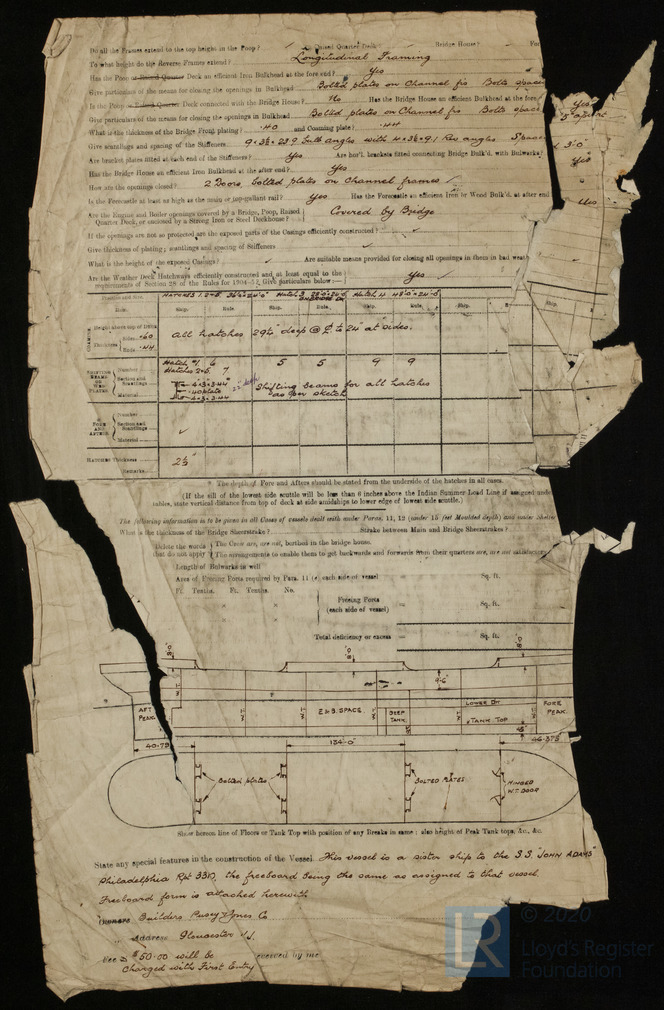 Do all the Frames extend to the top height in the Poop? Raised Quarter Deck Bridge House? For
To what height do the Reverse Frames extend? Longitudinal Framing
Has the Poop or Raised Quarter Deck an efficient Iron Bulkhead at the fore end? Yes
Give particulars of the means for closing the openings in Bulkhead Bolted plates on Channel frs Bolts spaced
Is the Poop or Raised Quarter Deck connected with the Bridge House? No Has the Bridge House an efficient Bulkhead at the fore Yes
Give particulars of the means for closing the openings in Bulkhead Bolted plates on Channel frs Bolts space 5" apart
What is the thickness of the Bridge Front plating? .40 and Coaming plate? .44
Give scantlings and spacing of the Stiffeners 9 × 3½ × 23.9 bulb angles with 4 × 3½ × 9.1 Rev angles Spaced 3'0"
Are bracket plates fitted at each end of the Stiffeners? Yes Are hor'l. brackets fitted connecting Bridge Bulk'd. with Bulwarks? Yes
Has the Bridge House an efficient Iron Bulkhead at the after end? Yes
How are the openings closed? 2 Doors bolted plates on Channel frames ✓
Is the Forecastle at least as high as the main or top-gallant rail? Yes Has the Forecastle an efficient Iron or Wood Bulk'd. at after end Yes
Are the Engine and Boiler openings covered by a Bridge, Poop, Raised Quarter Deck, or enclosed by a Strong Iron or Steel Deckhouse? Covered by Bridge
If the openings are not so protected are the exposed parts of the Casings efficiently constructed? ✓
Give thickness of plating; scantlings and spacing of Stiffeners ✓
What is the height of the exposed Casings? ✓ Are suitable means provided for closing all openings in them in bad weat
Are the Weather Deck Hatchways efficiently constructed and at least equal to the Yes ✓
requirements of Section 28 of the Rules for 1904-5? Give particulars below:—
Position and Size Hatches 1. 2 & 5. 36'0" × 24'0" Hatch 3 Hatch 4 48'0" × 24'0"
Item. Ship. Rule. Ship. Rule. Ship. Rule. Ship. Ship.
Height above top of Deck
Thickness Sides .60 All hatches 29½" deep @ ℄ to 24" at sides.
Ends .44
Number Hatch #1. 6 5 5 9 9
Hatches 2 & 5. 7
Section and Scantlings 4 × 3 × .44 Shifting beams for all hatches
.40 plate as per sketch
Material 4 × 3 × .44
FORE AND AFTERS
Number
Section and Scantlings ✓
Material
HATCHES Thickness 2½"
Remarks
* The depth of Fore and Afters should be stated from the underside of the hatches in all cases.
(If the sill of the lowest side scuttle will be less than 6 inches above the Indian Summer Load Line if assigned unde
tables, state vertical distance from top of deck at side amidships to lower edge of lowest side scuttle.)
The following information is to be given in all Cases of vessels dealt with under Paras. 11, 12 (under 15 feet Moulded depth) and under Shelter
What is the thickness of the Bridge Sheerstrake? Strake between Main and Bridge Sheerstrakes?
Delete the words The Crew are, are not, berthed in the bridge house.
that do not apply The arrangements to enable them to get backwards and forwards from their quarters are, are not satisfactory
Length of Bulwarks in well
Area of Freeing Ports required by Para. 11 (c. each side of vessel Sq. ft.
Ft. Tenths. Ft. Tenths. No.
× × Freeing Ports = Sq. ft.
× × (each side of vessel)
Total deficiency or excess = Sq. ft.
8'-0" 8'-0" 8'-0"
9'-6"
AFT PEAK E & B. SPACE DEEP TANK LOWER DK TANK TOP FORE PEAK.
40.79 134'-0" 46.375'
Bolted plates BOLTED PLATES HINGED W.T. DOOR
Show hereon line of Floors or Tank Top with position of any Breaks in same; also height of Peak Tank tops, &c., &c.
State any special features in the construction of the Vessel. This vessel is a sister ship to the S.S. "JOHN ADAMS"
Philadelphia Rpt 3310, the freeboard being the same as assigned to that vessel
Freeboard form is attached herewith
Owners Builders Pusey & Jones Co
Address Gloucester N.J.
Fee $ $50.00 will be received by me
Charged with First Entry
LR © 2020
Lloyd's Register
Foundation